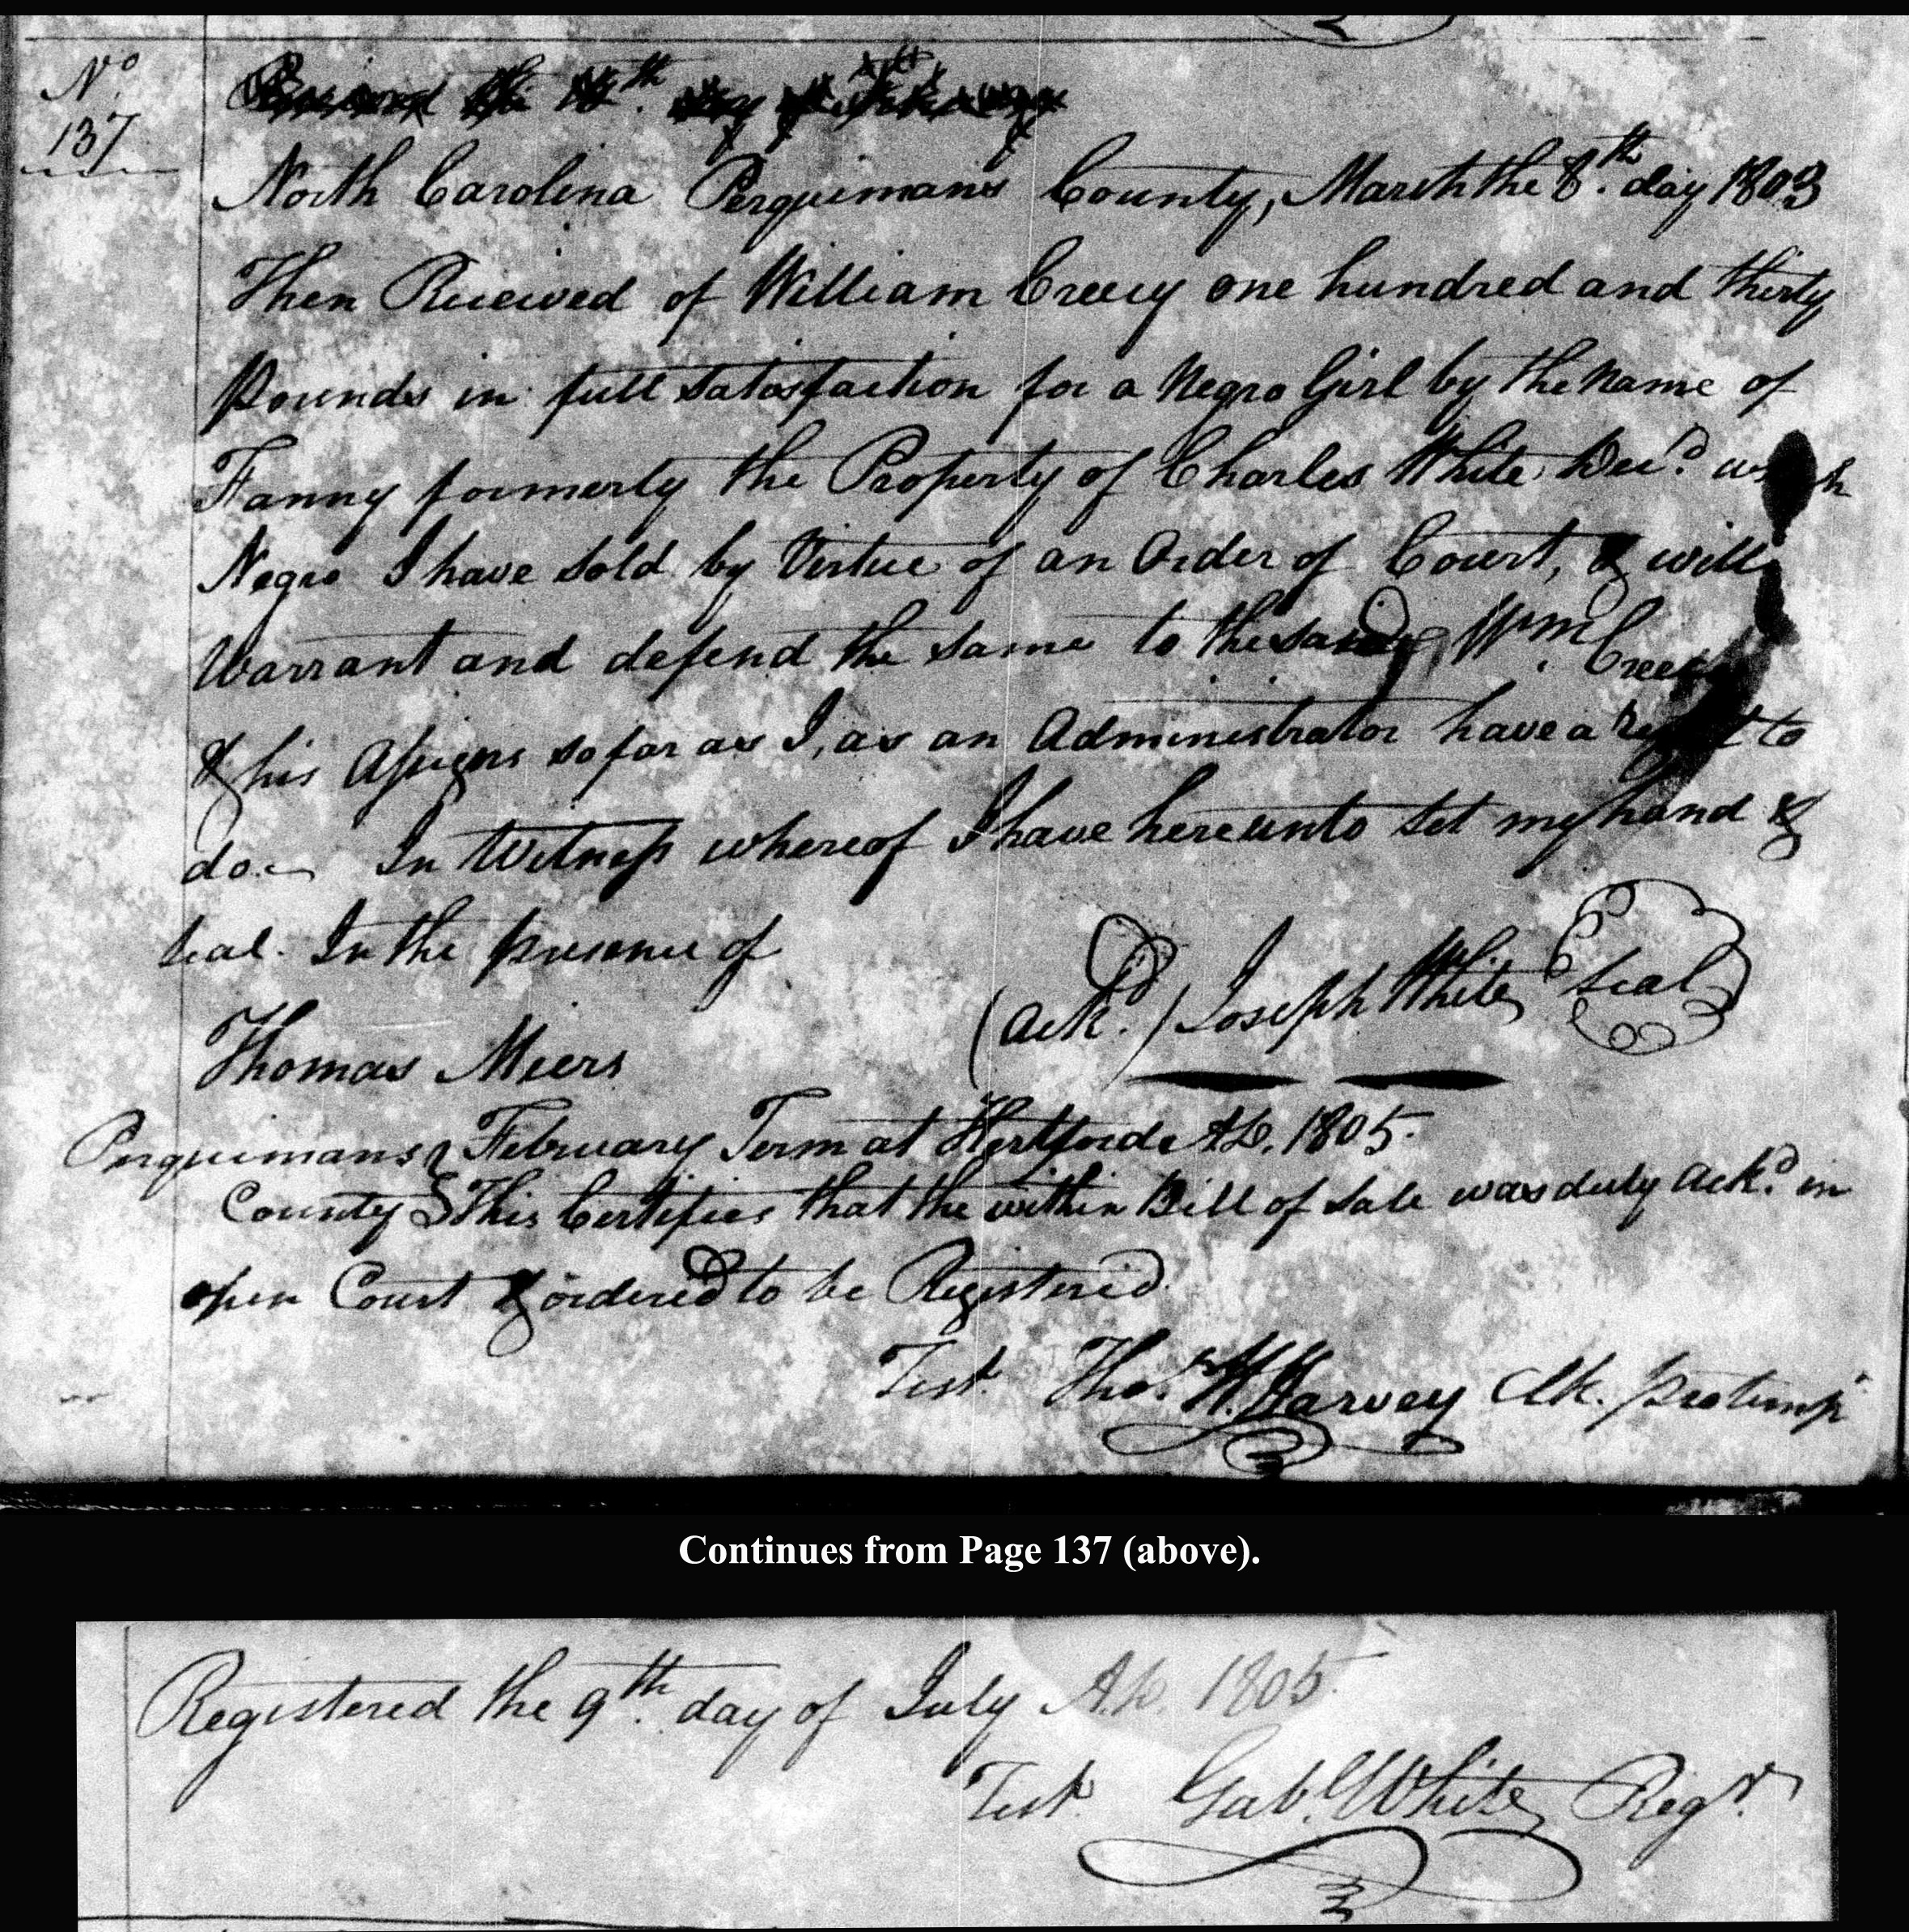 No.
137
North Carolina Perquimans County, March the 8th. day 1803
Then Received of William Creecy one hundred and thirty
Pounds in full satisfaction for a Negro Girl by the Name of
Fanny formerly the Property of Charles White, Decd.
Negro I have Sold by Virtue of an Order of Court, & will
Warrant and defend the same to the said Wm. Creecy
& his Assigns so far as I, as an Administrator have a right to
do. In Witness whereof I have hereunto Set my hand &
Seal. In the presence of
(Ackd.) Joseph White Seal
Thomas Meers
Perquimans February Term at Hertford AD. 1805.
County This Certifies that the within Bill of Sale was duly Ackd. in
open Court & ordered to be Registered.
Test. Thos. H. Harvey Clk. protemp
Continues from Page 137 (above).
Registered the 9th. day of July A.D. 1805.
Test Gab. White Regr.